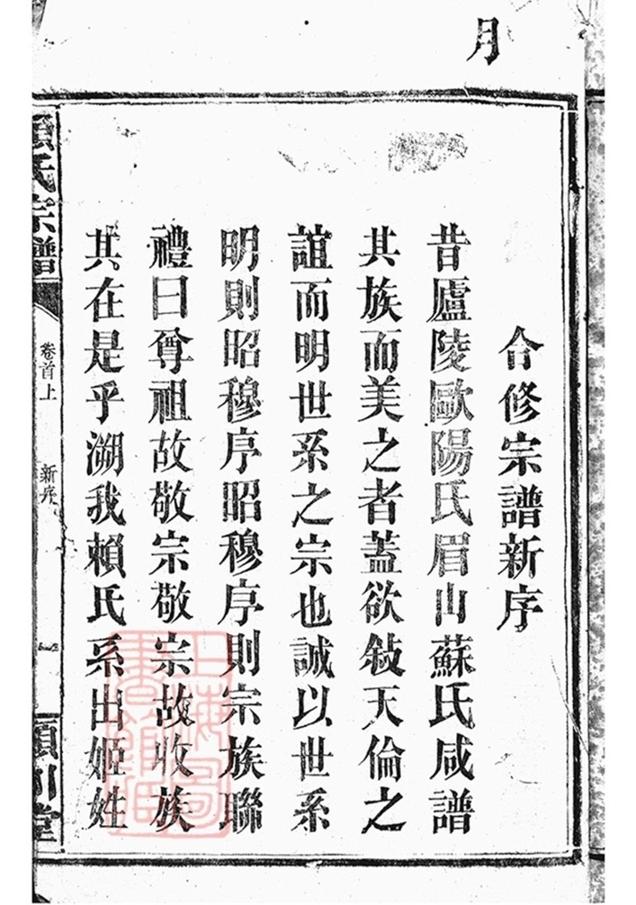 月
合修宗譜新序
昔廬陵歐陽氏眉山蘇氏咸譜
其族而美之者蓋欲敍天倫之
誼而明世系之宗也誠以世系
明則昭穆序昭穆序則宗族聯
禮曰尊祖故敬宗敬宗故收族
其在是乎溯我賴氏系出姬姓
賴氏宗譜
卷首上
新序
一
潁川堂